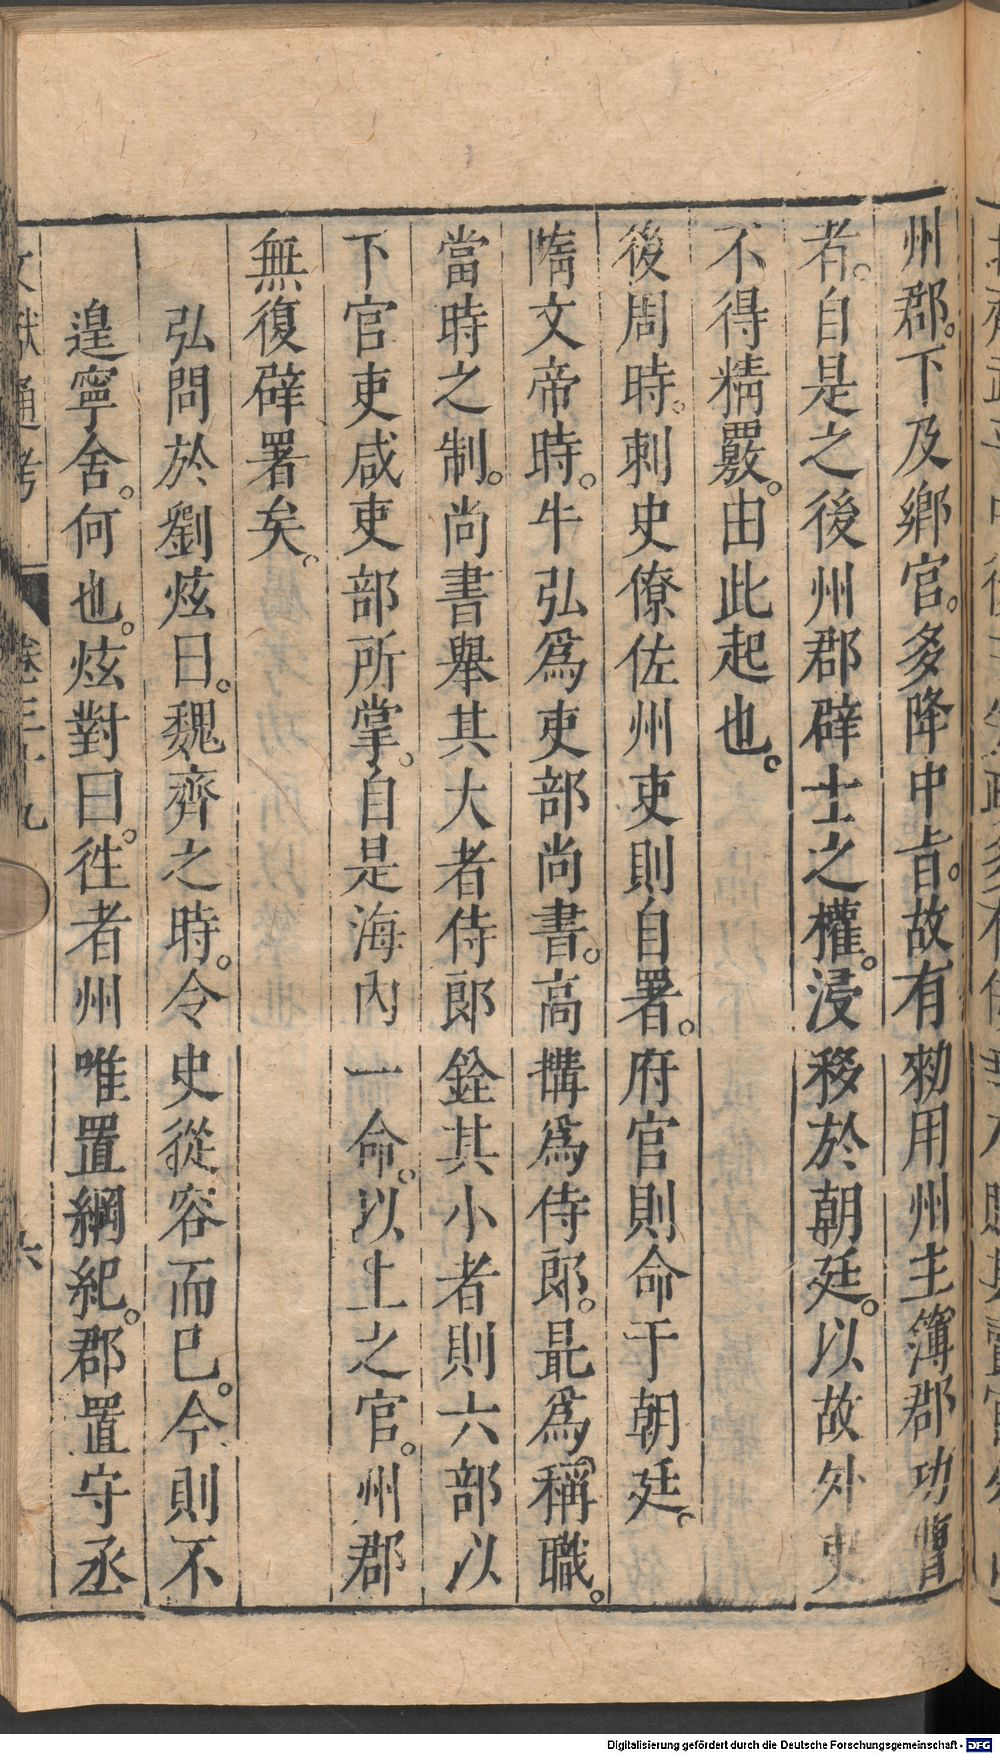 州郡。下及鄉官。多降中旨。故有勑用州主簿郡功曹
者。自是之後州郡辟士之權。浸移於朝廷。以故外吏
不得精覈。由此起也。
後周時。刺史僚佐州吏則自署。府官則命于朝廷。
隋文帝時。牛弘爲吏部尚書。高搆爲侍郎。最爲稱職。
當時之制。尚書舉其大者侍郎銓其小者則六部以
下官吏咸吏部所掌。自是海內一命。以上之官。州郡
無復辟署矣。
弘問於劉炫曰。魏齊之時。令史從容而已。今則不
遑寧舍。何也。炫對曰。徃者州唯置綱紀。郡置守丞
文獻通考 卷三十九 六
Digitalisierung gefördert durch die Deutsche Forschungsgemeinschaft - DFG